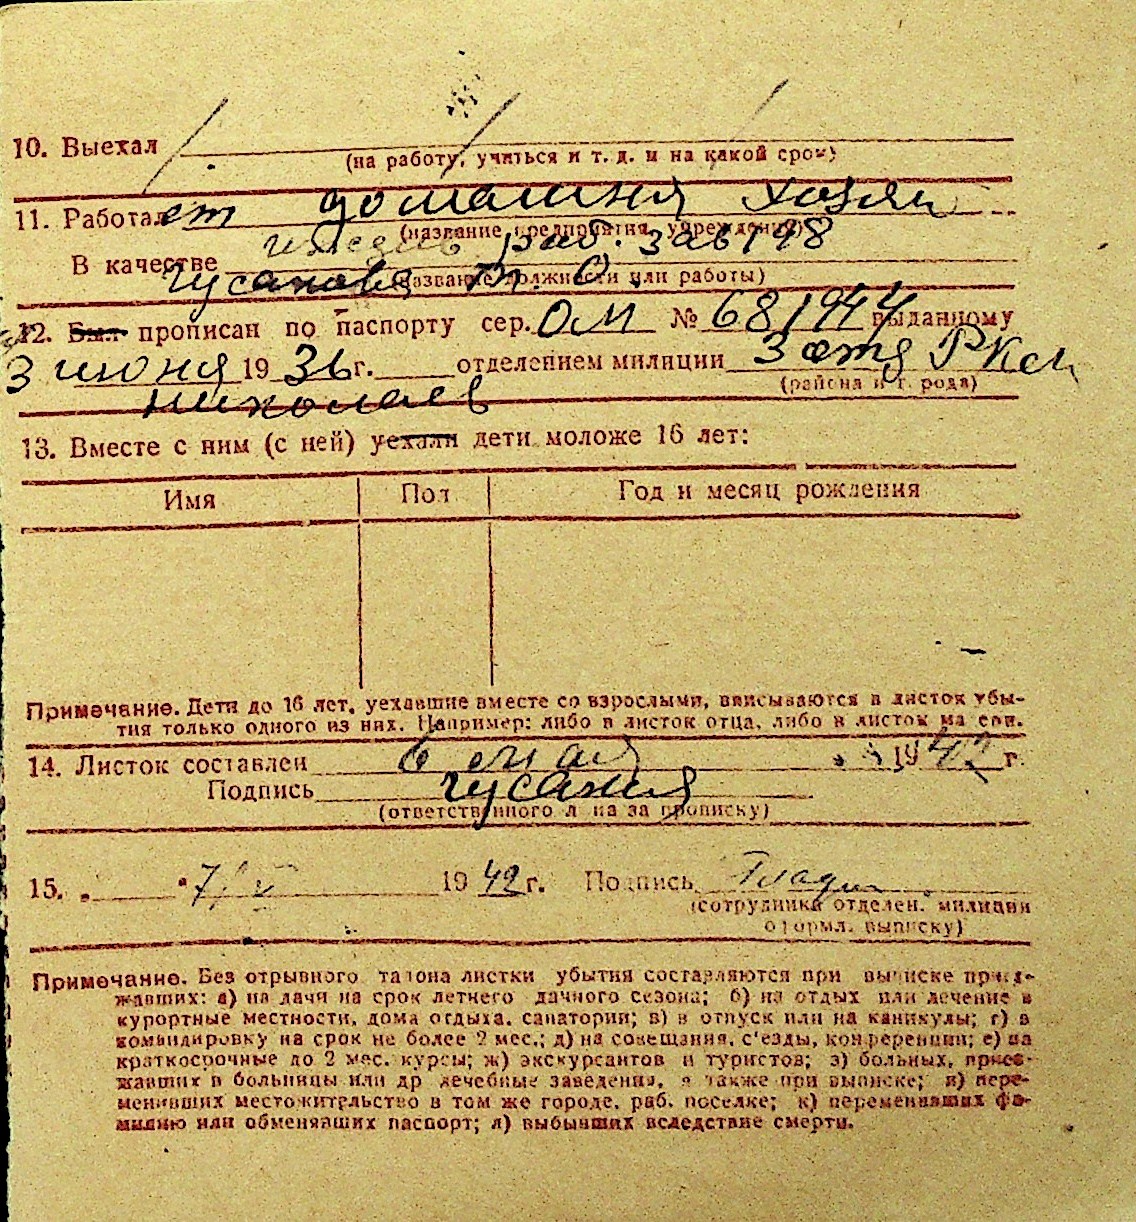 10. Выехал
(на работу, учиться и т. д. и на какой срок)
11. Работает домашняя хозяй
(название предприятия, учреждения)
иждив раб. зав 198
В качестве
Гусакова Т. О.
(название должности или работы)
12. Был прописан по паспорту сер. ОМ № 681944 выданному
3 июня 1936 г. отделением милиции 3 отд РКМ
(района и города)
Николаев
13. Вместе с ним (с ней) уехали дети моложе 16 лет:
Имя Пол Год и месяц рождения
Примечание. Дети до 16 лет, уехавшие вместе со взрослыми, вписываются в листок убы-
тия только одного из них. Например: либо в листок отца, либо в листок матери.
14. Листок составлен 6 мая 1942 г.
Подпись
(ответственного лица за прописку)
15. „ " 7/V 1942 г. Подпись
(сотрудника отделен. милиции
оформл. выписку)
Примечание. Без отрывного талона листки убытия составляются при выписке приез-
жавших: а) на дачи на срок летнего дачного сезона; б) на отдых или лечение в
курортные местности, дома отдыха, санатории; в) в отпуск или на каникулы; г) в
командировку на срок не более 2 мес.; д) на совещания, с'езды, конференции; е) на
краткосрочные до 2 мес. курсы; ж) экскурсантов и туристов; з) больных, приез-
жавших в больницы или др лечебные заведения, а также при выписке; и) пере-
менивших местожительство в том же городе, раб. поселке; к) переменивших фа-
милию или обменявших паспорт; л) выбывших вследствие смерти.